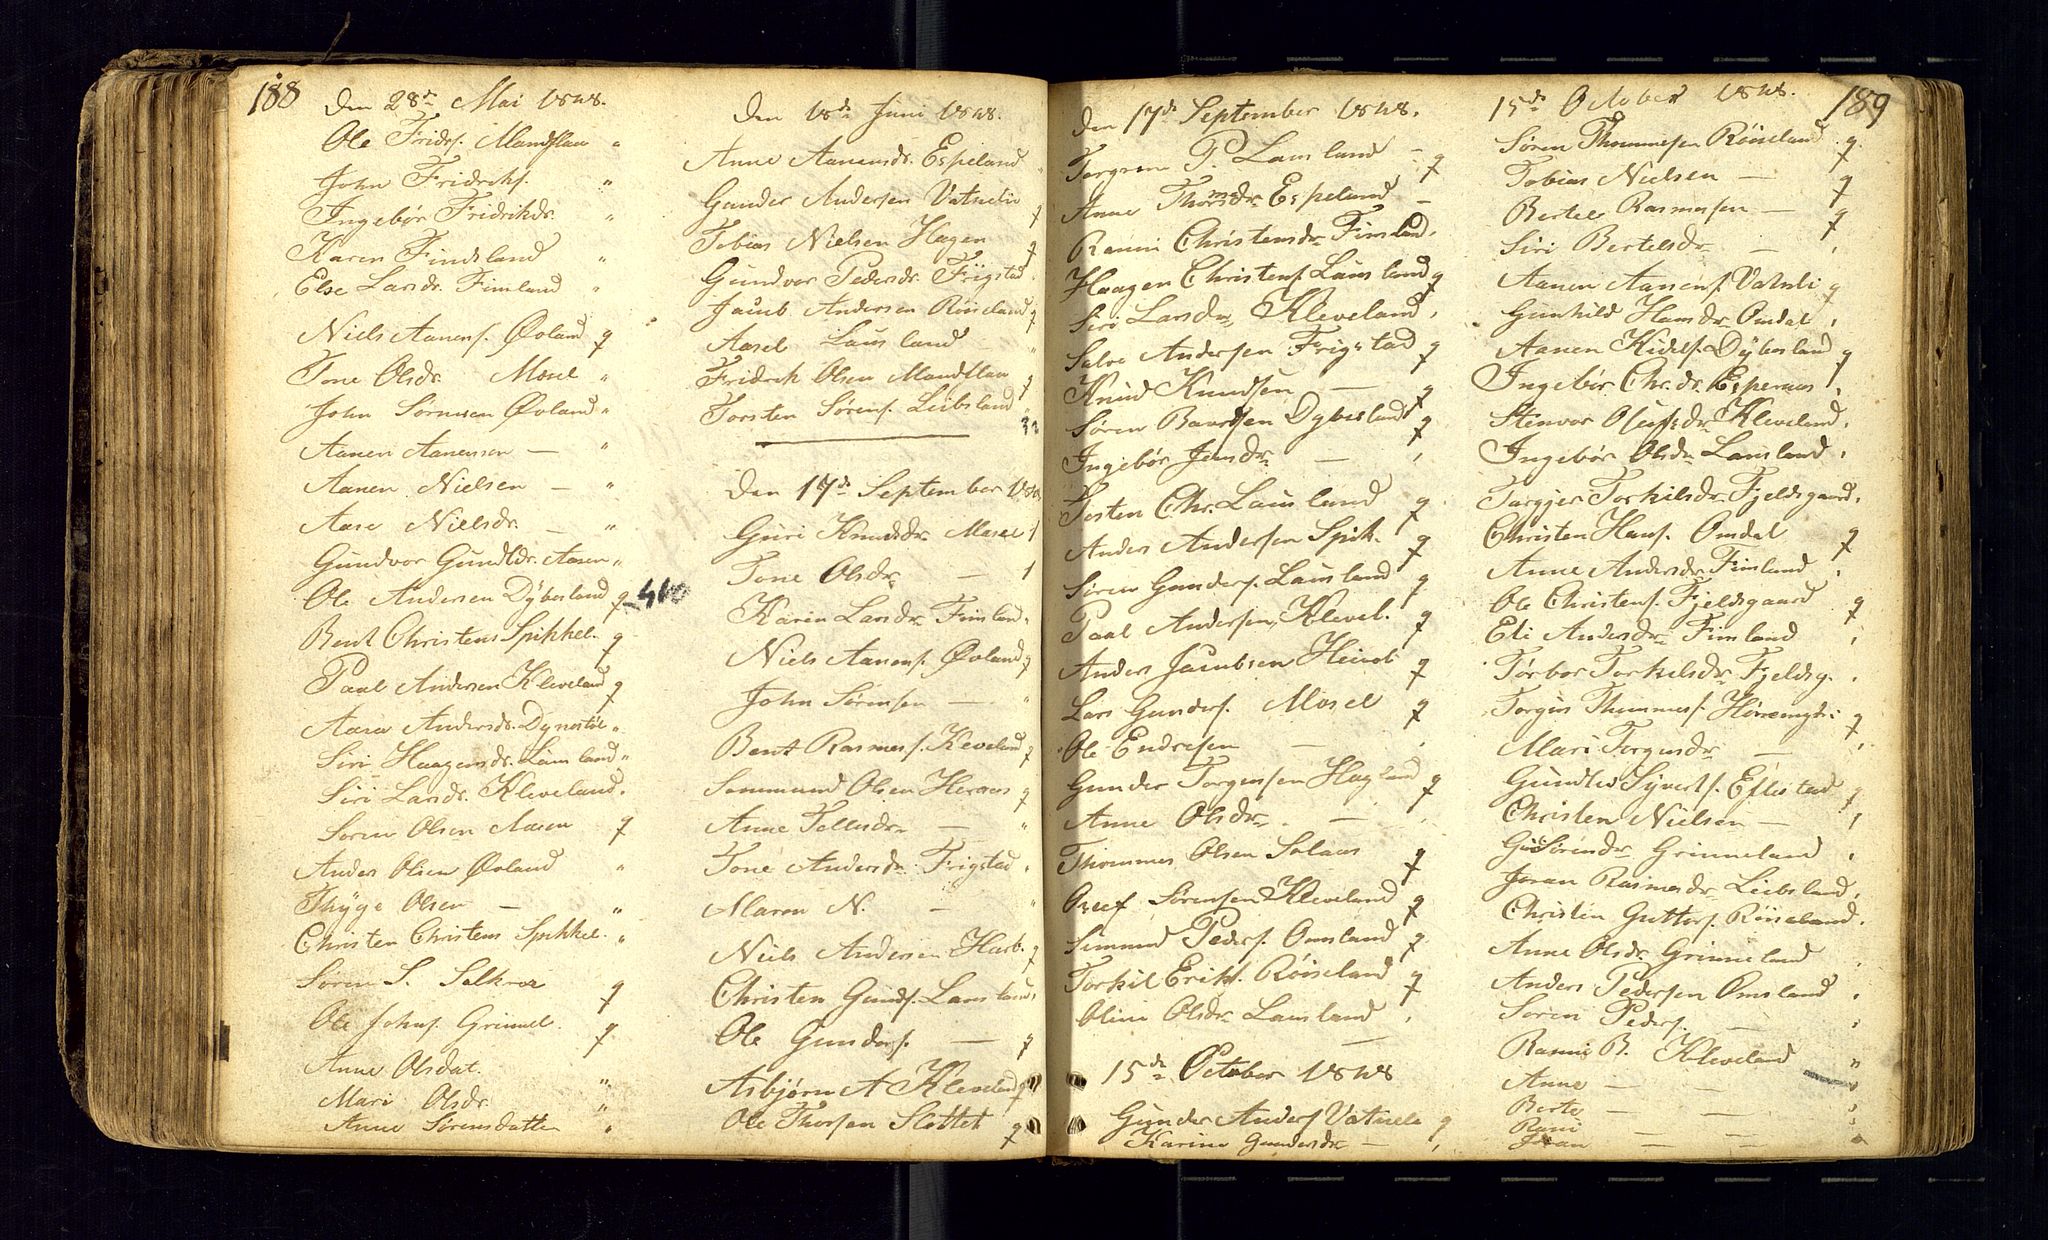 188
Den 28de Mai 1848.
Ole Fridrs. Mandflaa "
John Fridriks. "
Ingebør Fridrikdr. "
Karen Findsland "
Else Larsdr. Finsland "
Niels Aanens. Øvland q
Tone Olsdr. Mosel "
John Sørensen Øvland "
Aanen Aanensen — "
Aanen Nielsen — "
Aase Nielsdr. — "
Gundvor Gundldr. Aasen "
Ole Andersen Dÿbesland q
Bent Christens Spikkel. q
Paal Andersen Kleveland q
Aase Andersdr. Dynestøl "
Siri Haagensdr. Lausland "
Siri Larsdr. Kleveland "
Søren Olsen Aasen q
Anders Olsen Øvland "
Thÿge Olsen — "
Christen Christens Spikkel. "
Søren S. q
Ole Johns. Grimel. q
Anne Olsdat. "
Mari Olsdr. "
Anne Sørensdatter "
Den 18de Juni 1848.
Anne Aanensdr. Espeland "
Gunder Andersen Vatnelie q
Tobias Nielsen Hagen q
Gundvor Pedersdr. Frÿgstad
Jacob Andersen Røiseland q
Aasel Lausland "
Fridrik Olsen Mandflaa q
Torsten Sørens. Leibsland "
32
Den 17de September 1848
Guri Knudsdr. Mosel 1
Tone Olsdr — 1
Karen Larsdr. Finsland "
Niels Aanens. Øvland q
John Sørensen — "
Bent Rasmuss. Kleveland q
Sommund Olsen Heraas q
Anne Tollisdr — "
Tone Andersdr. Frigstad "
Maren N. — "
Niels Andersen Harb. q
Christen Gunds. Lausland
Ole Gunders. — q
Asbjørn A Kleveland q
Ole Thorsen Slottet q
189
Den 17de September 1848.
Torgrim P. Lausland — q
Anne Thomsdr Espeland —
Ranni Christensdr Finsland.
Haagen Christens. Lausland q
Siri Larsdr, Kleveland,
Salve Andersen Frigstad q
Knud Knudsen — q
Søren Baardsen Dybesland q
Ingebør Jensdr — ,
Tosten Chr. Lausland q
Anders Andersen Spik. q
Søren Gunders. Lausland q
Paal Andersen, Klevel. q
Anders Jacobsen q
Lars Gunders. Mosel q
Ole Endresen — ,
Gunder Torgensen Hagland q
Anne Olsdr. — ,
Thommes Olsen Solaas q
Osuf Sørensen Kleveland q
Simmund Peders. Omsland q
Torkil Eriks. Røiseland q
Oline Olsdr Lausland ,
15de October 1848
Gunder Anders Vatnele q
Karine Gundersdr — ,
15de October 1848.
Søren Thommesen Røiseland q
Tobias Nielsen — q
Bertel Rasmusen — q
Siri Bertelsdr — ,
Aanen Aanens. Vatnli q
Gunhild Hansdr Omdal ,
Aanen Kidels. Dÿbesland q
Ingebør Chr. dr. Esperaas ,
Stenvor Olufsdr Kleveland,
Ingebør Olsdr Lausland ,
Targjer Torkilsdr. Fjeldsgaard,
Christen Hans. Omdal q
Anne Andersdr. Finsland ,
Ole Christens. Fjeldsgaard q
Eli Andersdr Finsland ,
Torbor Torkelsdr. Fjeldsg. ,
Torgius Thommes. q
Mari Torgersdr — ,
Gundled Sÿverts. Eftestad q
Christen Nielsen — ,
Guri Sørendr Grinneland ,
Joran Rasmusdr Leibsland ,
Christen Guttors. Røiseland.
Anne Olsdr Grinneland ,
Anders Pedersen Omsland ,
Søren Peders. — ,
Rasmus B. Kleveland "
Anne — —
Berte — —
Rani — —
Joran — —